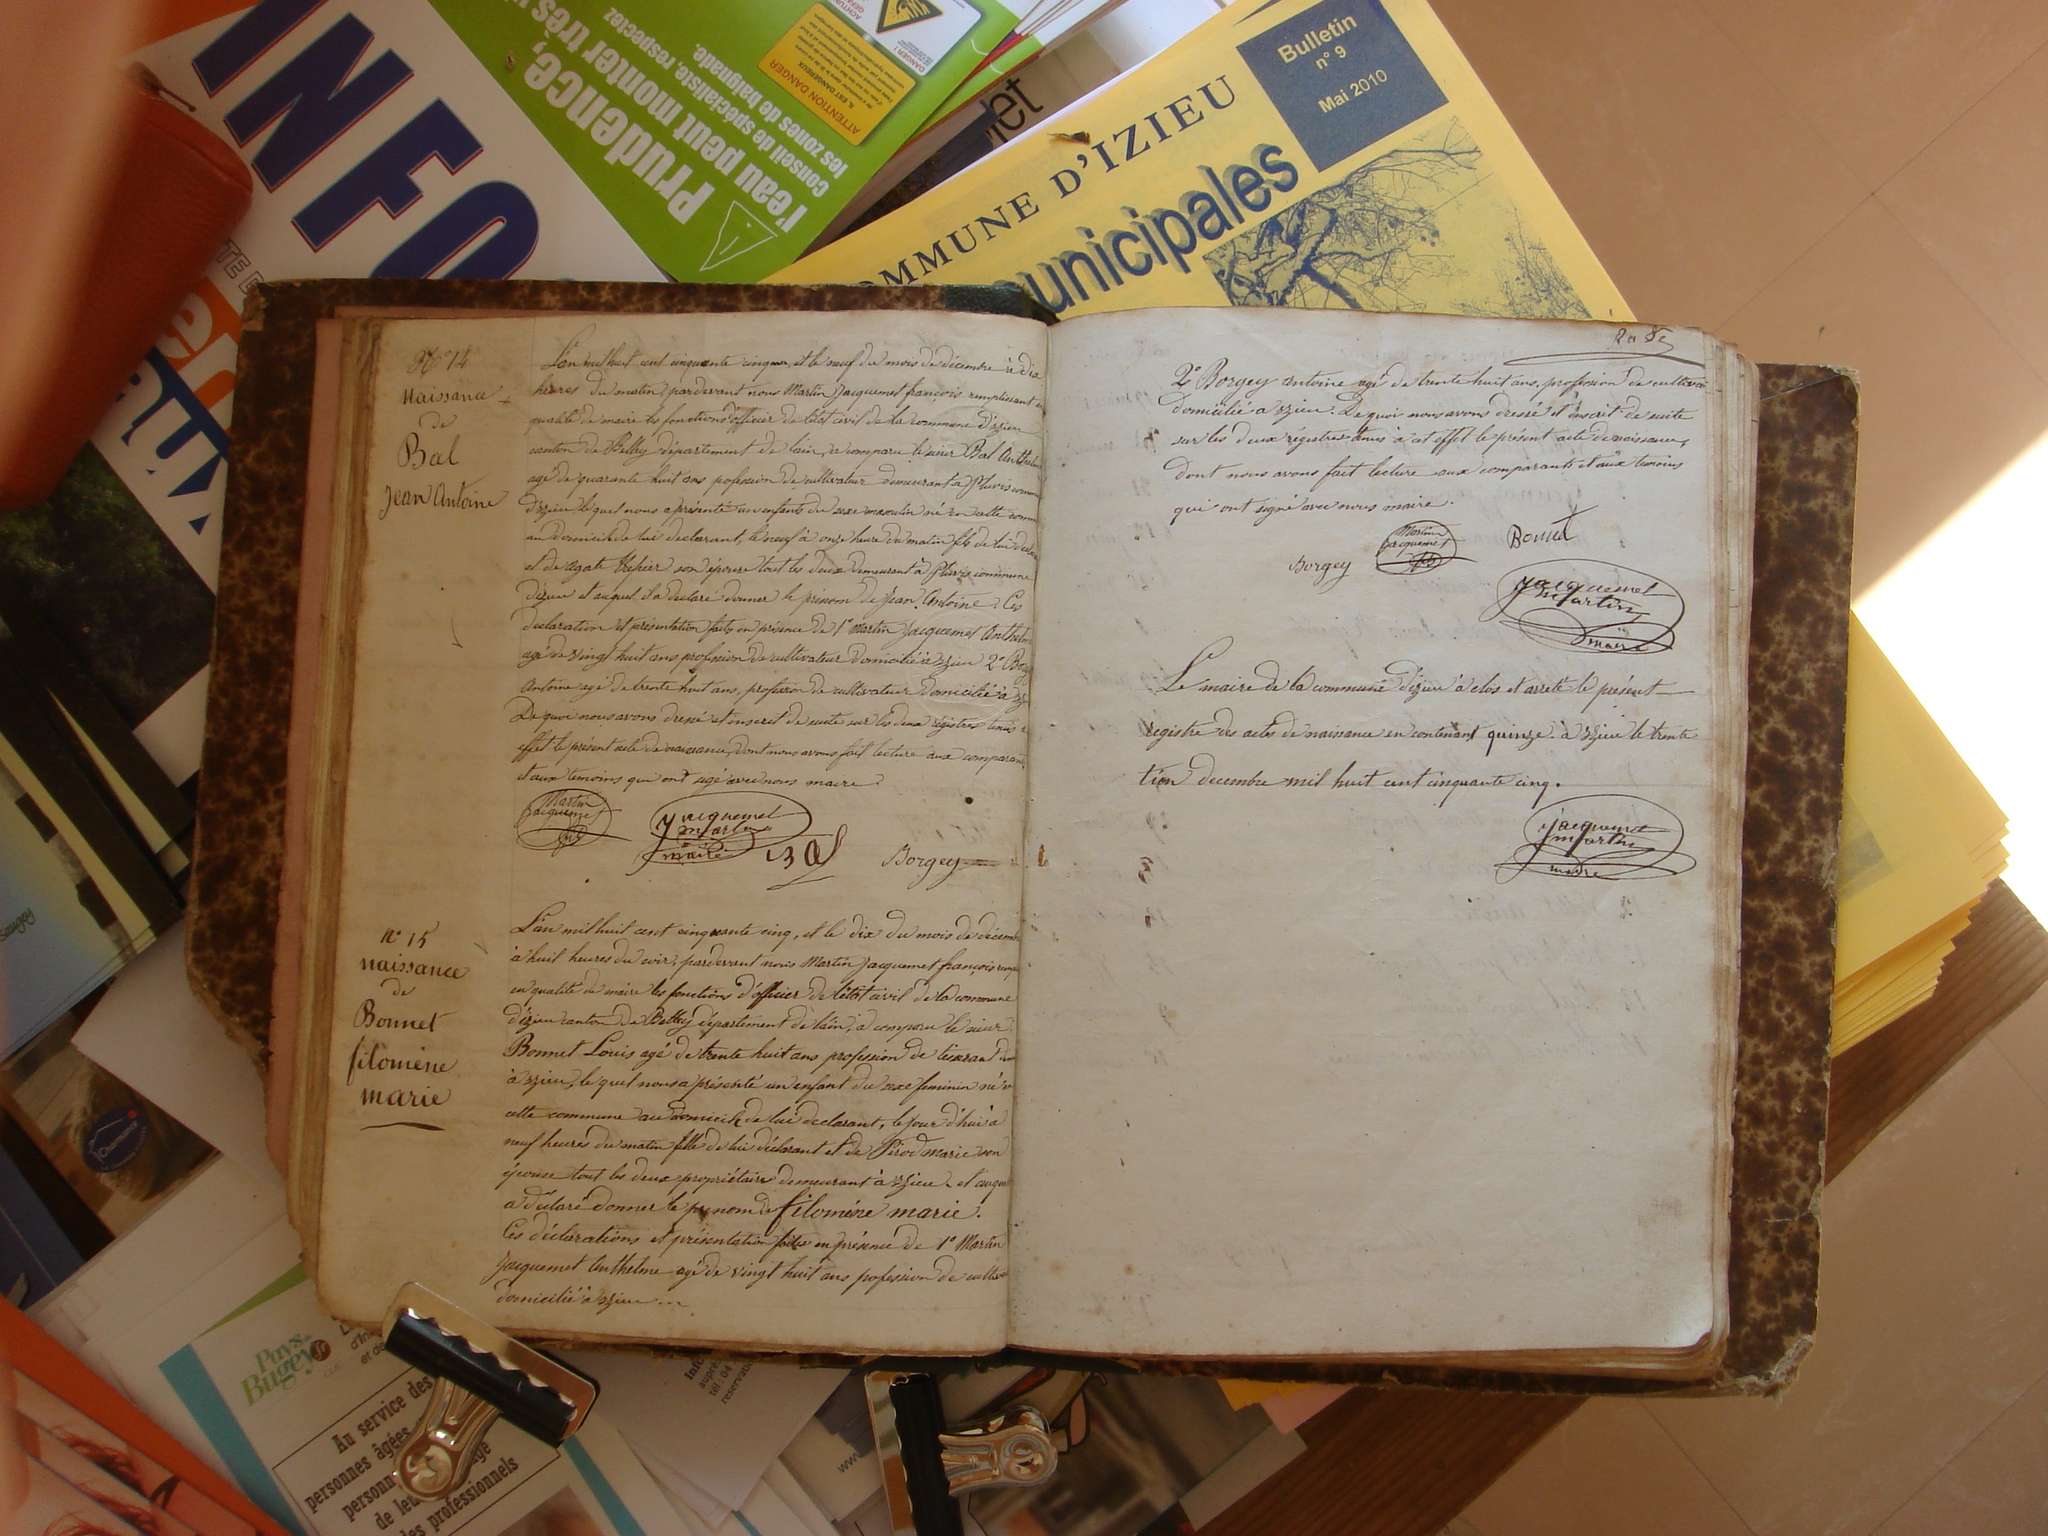 INFO
Prudence,
l'eau peut monter très
Conseil de spécialiste, respectez
les zones de baignade.
ATTENTION DANGER
Bulletin
n° 9
Mai 2010
COMMUNE D'IZIEU
unicipales
N° 14
Naissance
de
Bal
Jean Antoine
L'an mil huit cent cinquante cinq, et le neuf du mois de décembre à dix
heures du matin pardevant nous Martin Jacquemet françois remplissant en
qualité de maire les fonctions d'officier de l'état civil de la commune d'izieu
canton de Belley département de l'ain, a comparu le sieur Bal Anthelme
agé de quarante huit ans profession de cultivateur demeurant à Pluvis commune
d'izieu lequel nous a présenté un enfant du sexe masculin né en cette commune
au domicile de lui declarant, le neuf à onze heure du matin fils de lui déclarant
et de agate son épouse tout les deux demeurant à Pluvis commune
d'izieu et auquel il a declaré donner le prénom de jean Antoine. Ces
declaration et présentation faite en présence de 1° Martin Jacquemet Anthelme
agé de vingt huit ans profession de cultivateur domicilié à izieu 2° Borgey
Antoine agé de trente huit ans, profession de cultivateur domicilié à izieu
De quoi nous avons dressé et inscrit de suite sur les deux régistres tenus à
effet le présent acte de naissance, dont nous avons fait lecture aux comparants
et aux temoins qui ont signé avec nous maire.
Martin
Jacquemet
Jacquemet
Martin
maire
Bal
Borgey
n° 15
naissance
de
Bonnet
filomène
marie
L'an mil huit cent cinquante cinq, et le dix du mois de décembre
à huit heures du soir, pardevant nous Martin Jacquemet françois rempli
en qualité de maire les fonctions d'officier de l'état civil de la commune
d'izieu canton de Belley département de l'ain, a comparu le sieur
Bonnet Louis agé de trente huit ans profession de tisserand
à izieu, le quel nous a présenté un enfant du sexe feminin né
cette commune au domicile de lui declarant, le jour d'hui à
neuf heures du matin fille de lui déclarant et de Pérod marie son
épouse tout les deux propriétaire demeurant à izieu et auquel
a déclaré donner le prenom de filomène marie.
Ces déclarations et présentation faites en présence de 1° Martin
Jacquemet Anthelme agé de vingt huit ans profession de cultiv
domicilié à izieu
2° Borgey Antoine agé de trente huit ans, profession de cultiva
domicilié à izieu. De quoi nous avons dressé et inscrit de suite
sur les deux régistres tenus à cet effet le présent acte de naissance,
dont nous avons fait lecture aux comparants et aux temoins
qui ont signé avec nous maire.
Borgey
Martin
Jacquemet
Bonnet
Jacquemet
Martin
maire
Le maire de la commune d'izieu à clos et arreté le présent
registre des actes de naissance en contenant quinze. à izieu le trente
décembre mil huit cent cinquante cinq.
Jacquemet
Martin
maire
Pays
Bugey
Au service des
personnes âgées